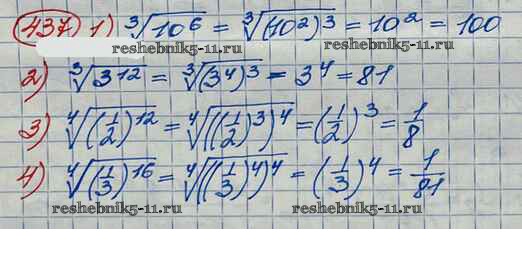 437) 1) ∛(10⁶) = ∛((10²)³) = 10² = 100
reshebnik5-11.ru reshebnik5-11.ru
2) ∛(3¹²) = ∛((3⁴)³) = 3⁴ = 81
3) ∜((1/2)¹²) = ∜(((1/2)³)⁴) = (1/2)³ = 1/8
4) ∜((1/3)¹⁶) = ∜(((1/3)⁴)⁴) = (1/3)⁴ = 1/81
reshebnik5-11.ru reshebnik5-11.ru